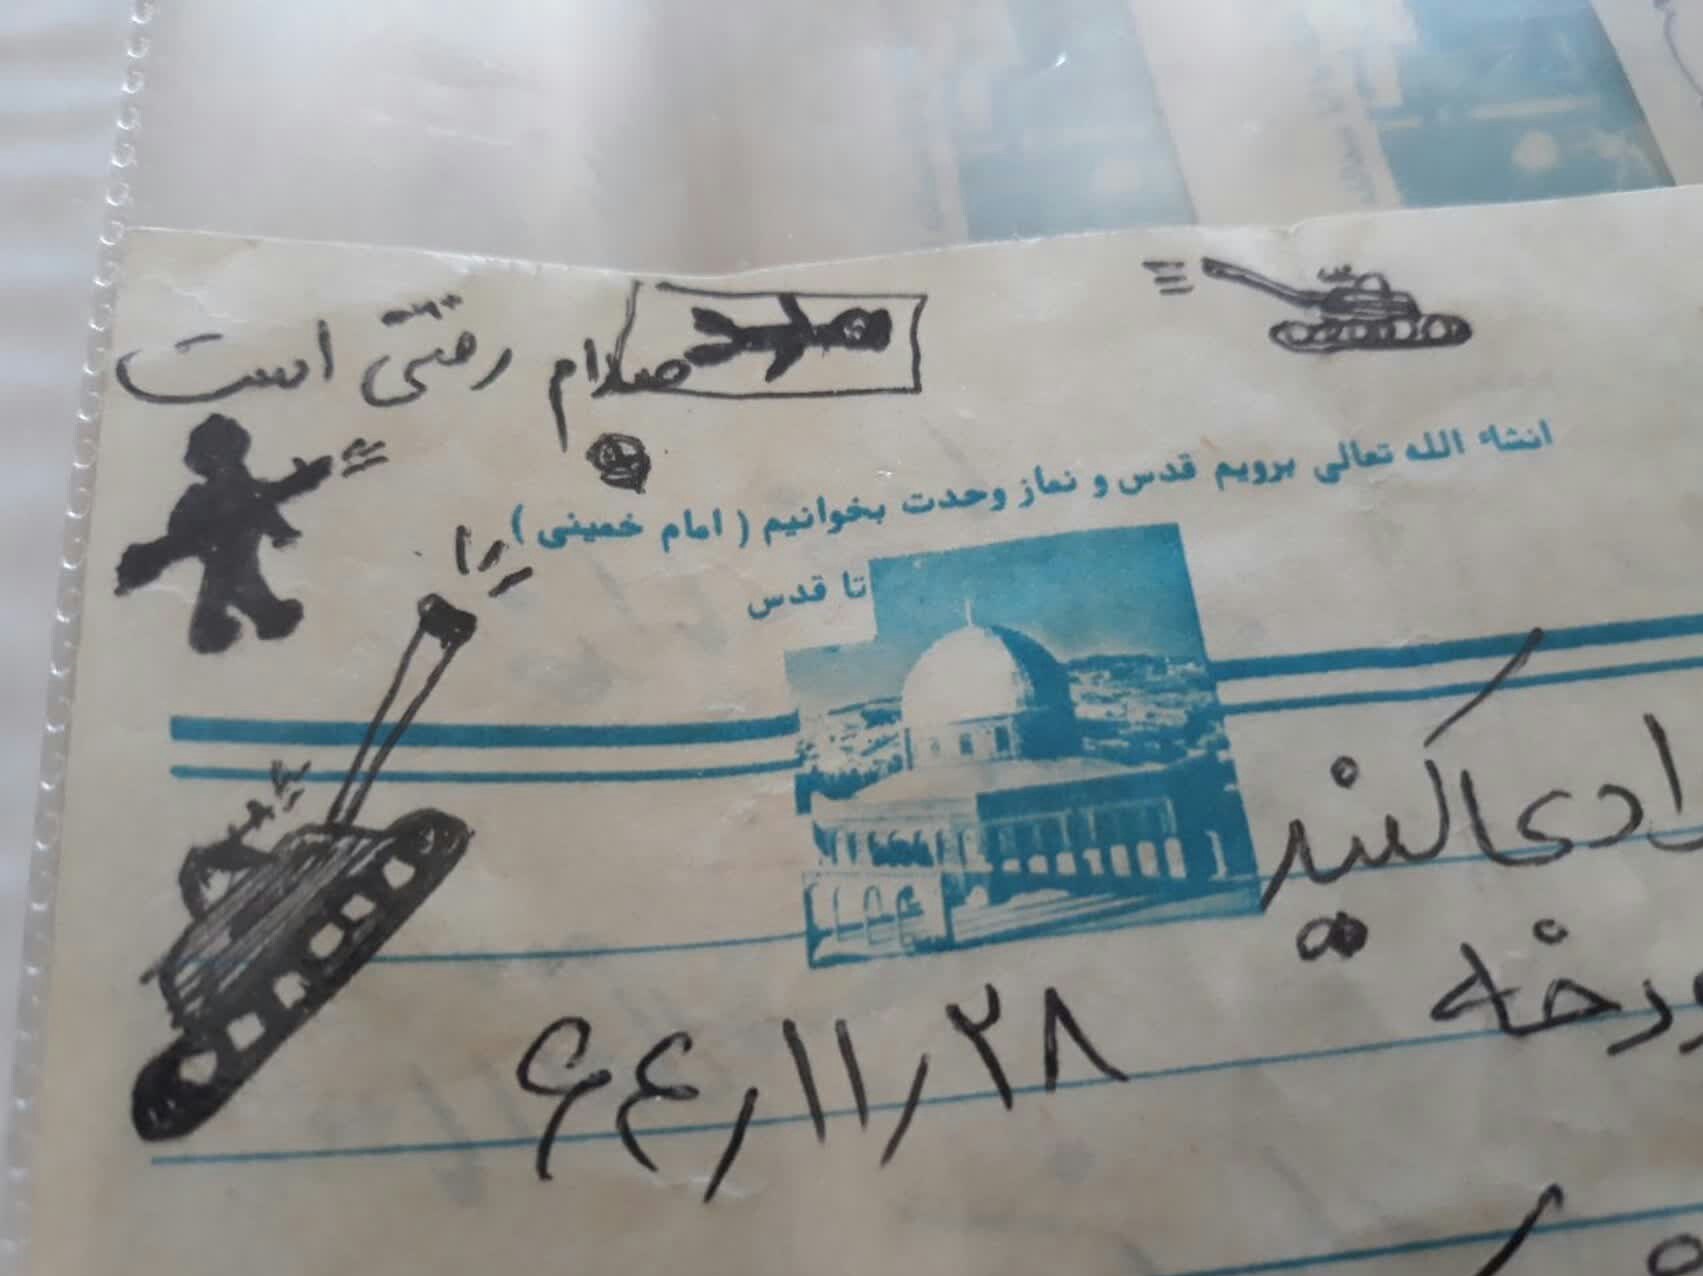 صدام رفتنی است
انشاء الله تعالی برویم قدس و نماز وحدت بخوانیم ( امام خمینی )
تا قدس
ادی کنید
ورخه ۶۴٫۱۱٫۲۸